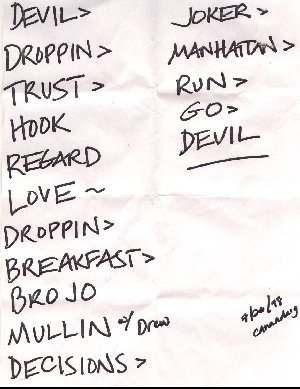 DEVIL >
DROPPIN >
TRUST >
HOOK
REGARD
LOVE ~
DROPPIN >
BREAKFAST >
BROJO
MULLIN w/ Drew
DECISIONS >
JOKER >
MANHATTAN >
RUN >
GO >
DEVIL